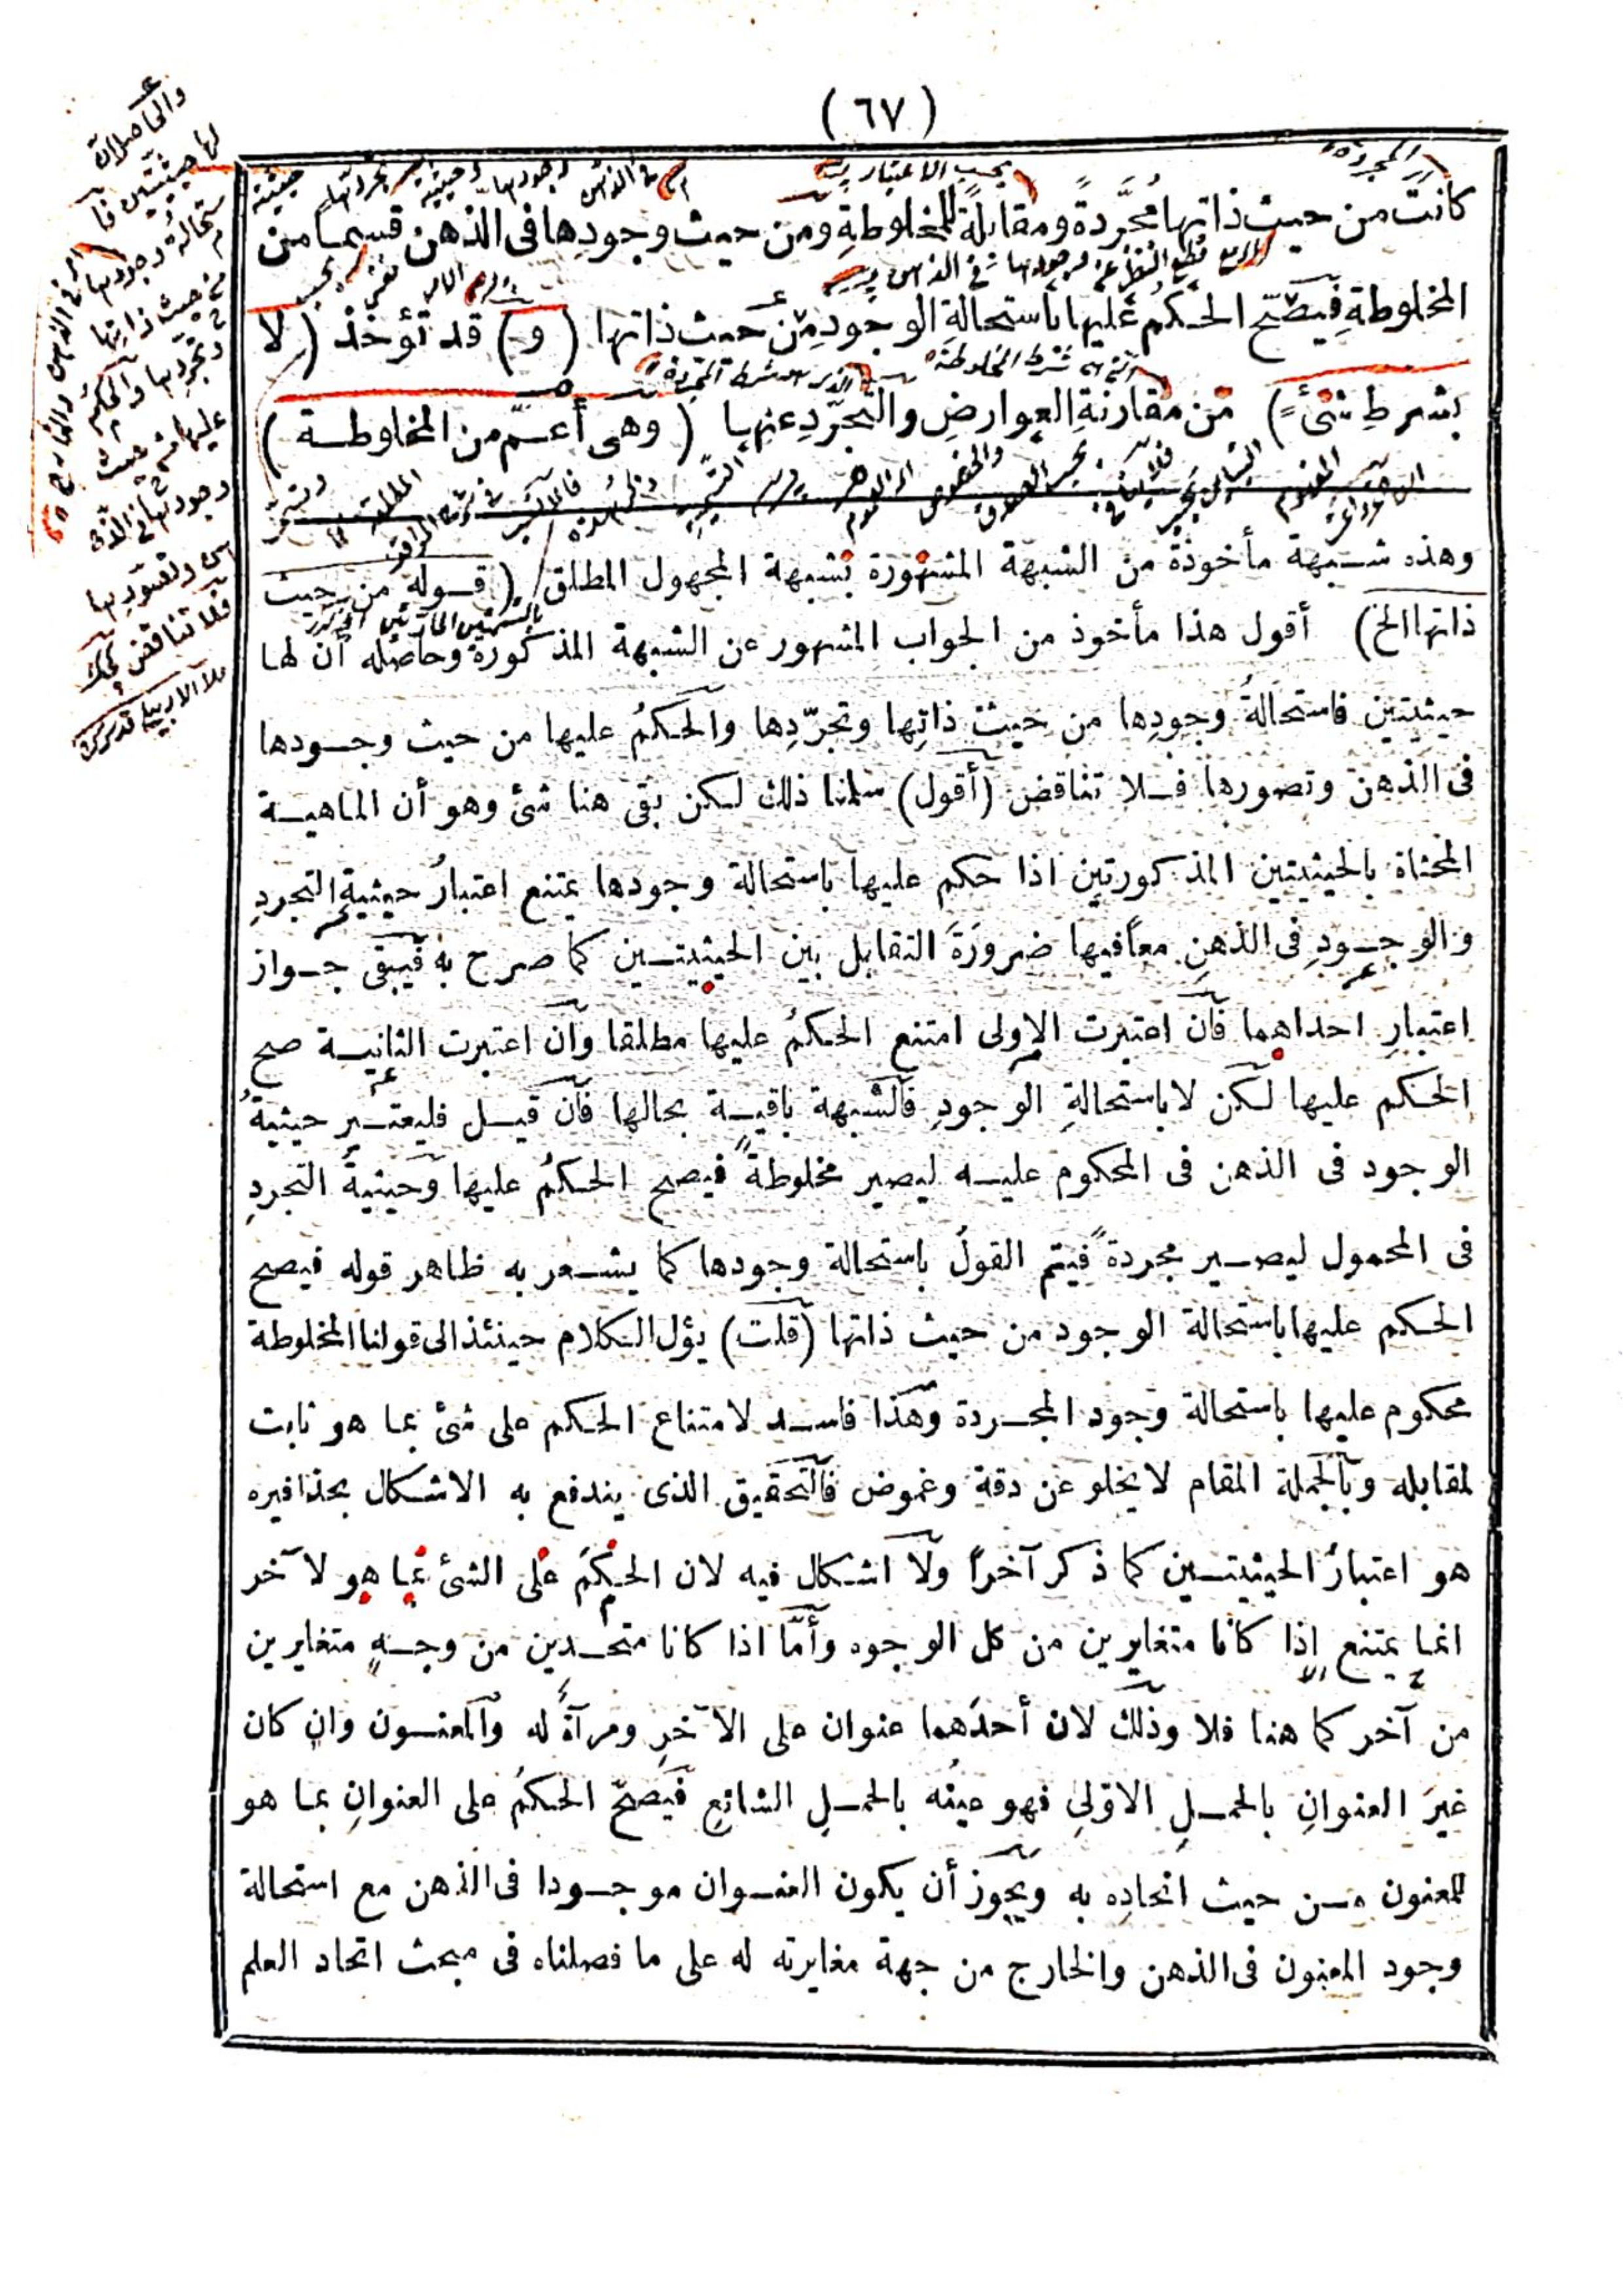 (٦٧)
كانت من حيث ذاتها مُجَرَّدةً ومقابلةً للمخلوطةِ ومن حيث وجودِها فى الذهن قسما من
المخلوطةِ فيصحّ الحكمُ عليها باستحالةِ الوجودِ من حيث ذاتها (و) قد تؤخذ (لا
بشرطِ شئ) من مقارنةِ العوارضِ والتجرّدِ عنها (وهى أعمّ من المخلوطة)
وهذه شبهة مأخوذة من الشبهة المشهورة بشبهة المجهول المطلق (قوله من حيث
ذاتها الخ) أقول هذا مأخوذ من الجواب المشهور عن الشبهة المذكورة وحاصله أن لها
حيثيتين فاستحالةُ وجودِها من حيث ذاتِها وتجرّدِها والحكمُ عليها من حيث وجودها
فى الذهن وتصورها فلا تناقض (أقول) سلمنا ذلك لكن بقى هنا شئ وهو أن الماهية
المحثاة بالحيثيتين المذكورتين اذا حكم عليها باستحالة وجودها يمتنع اعتبارُ حيثيةِ التجردِ
والوجودِ فى الذهنِ معًا فيها ضرورَةَ التقابل بين الحيثيتين كما صرح به فيبقى جواز
اعتبارِ احداهما فان اعتبرت الاولى امتنع الحكمُ عليها مطلقا وان اعتبرت الثانية صح
الحكم عليها لكن لا باستحالةِ الوجودِ فالشبهة باقية بحالها فان قيل فليعتبر حيثيةُ
الوجود فى الذهن فى المحكوم عليه ليصير مخلوطةً فيصح الحكمُ عليها وحيثيةُ التجردِ
فى المحمول ليصير مجردةً فيتم القولُ باستحالة وجودها كما يشعر به ظاهر قوله فيصح
الحكم عليها باستحالة الوجود من حيث ذاتها (قلت) يؤل الكلام حينئذ الى قولنا المخلوطة
محكوم عليها باستحالة وجود المجردة وهذا فاسد لامتناع الحكم على شئ بما هو ثابت
لمقابله وبالجملة المقام لا يخلو عن دقة وغموض فالتحقيق الذى يندفع به الاشكال بحذافيره
هو اعتبارُ الحيثيتين كما ذكر آخراً ولا اشكال فيه لان الحكمَ على الشئ بما هو لآخر
انما يمتنع إذا كانا متغايرين من كل الوجوه وأمّا اذا كانا متحدين من وجهٍ متغايرين
من آخر كما هنا فلا وذلك لان أحدَهما عنوان على الآخرِ ومرآةٌ له والمعنون وان كان
غيرَ العنوانِ بالحملِ الاوّلىِ فهو عينُه بالحملِ الشائعِ فيصحّ الحكمُ على العنوانِ بما هو
للمعنون من حيث اتحادِه به ويجوز أن يكون العنوان موجودا فى الذهن مع استحالة
وجود المعنون فى الذهن والخارج من جهة مغايرته له على ما فصلناه فى مبحث اتحاد العلم
والحاصل ان
لها حيثيتين فا
ستحالة وجودها
من حيث ذاتها
وتجردها والحكم
عليها من حيث
وجودها فى الذ
هن وتصورها
فلا تناقض